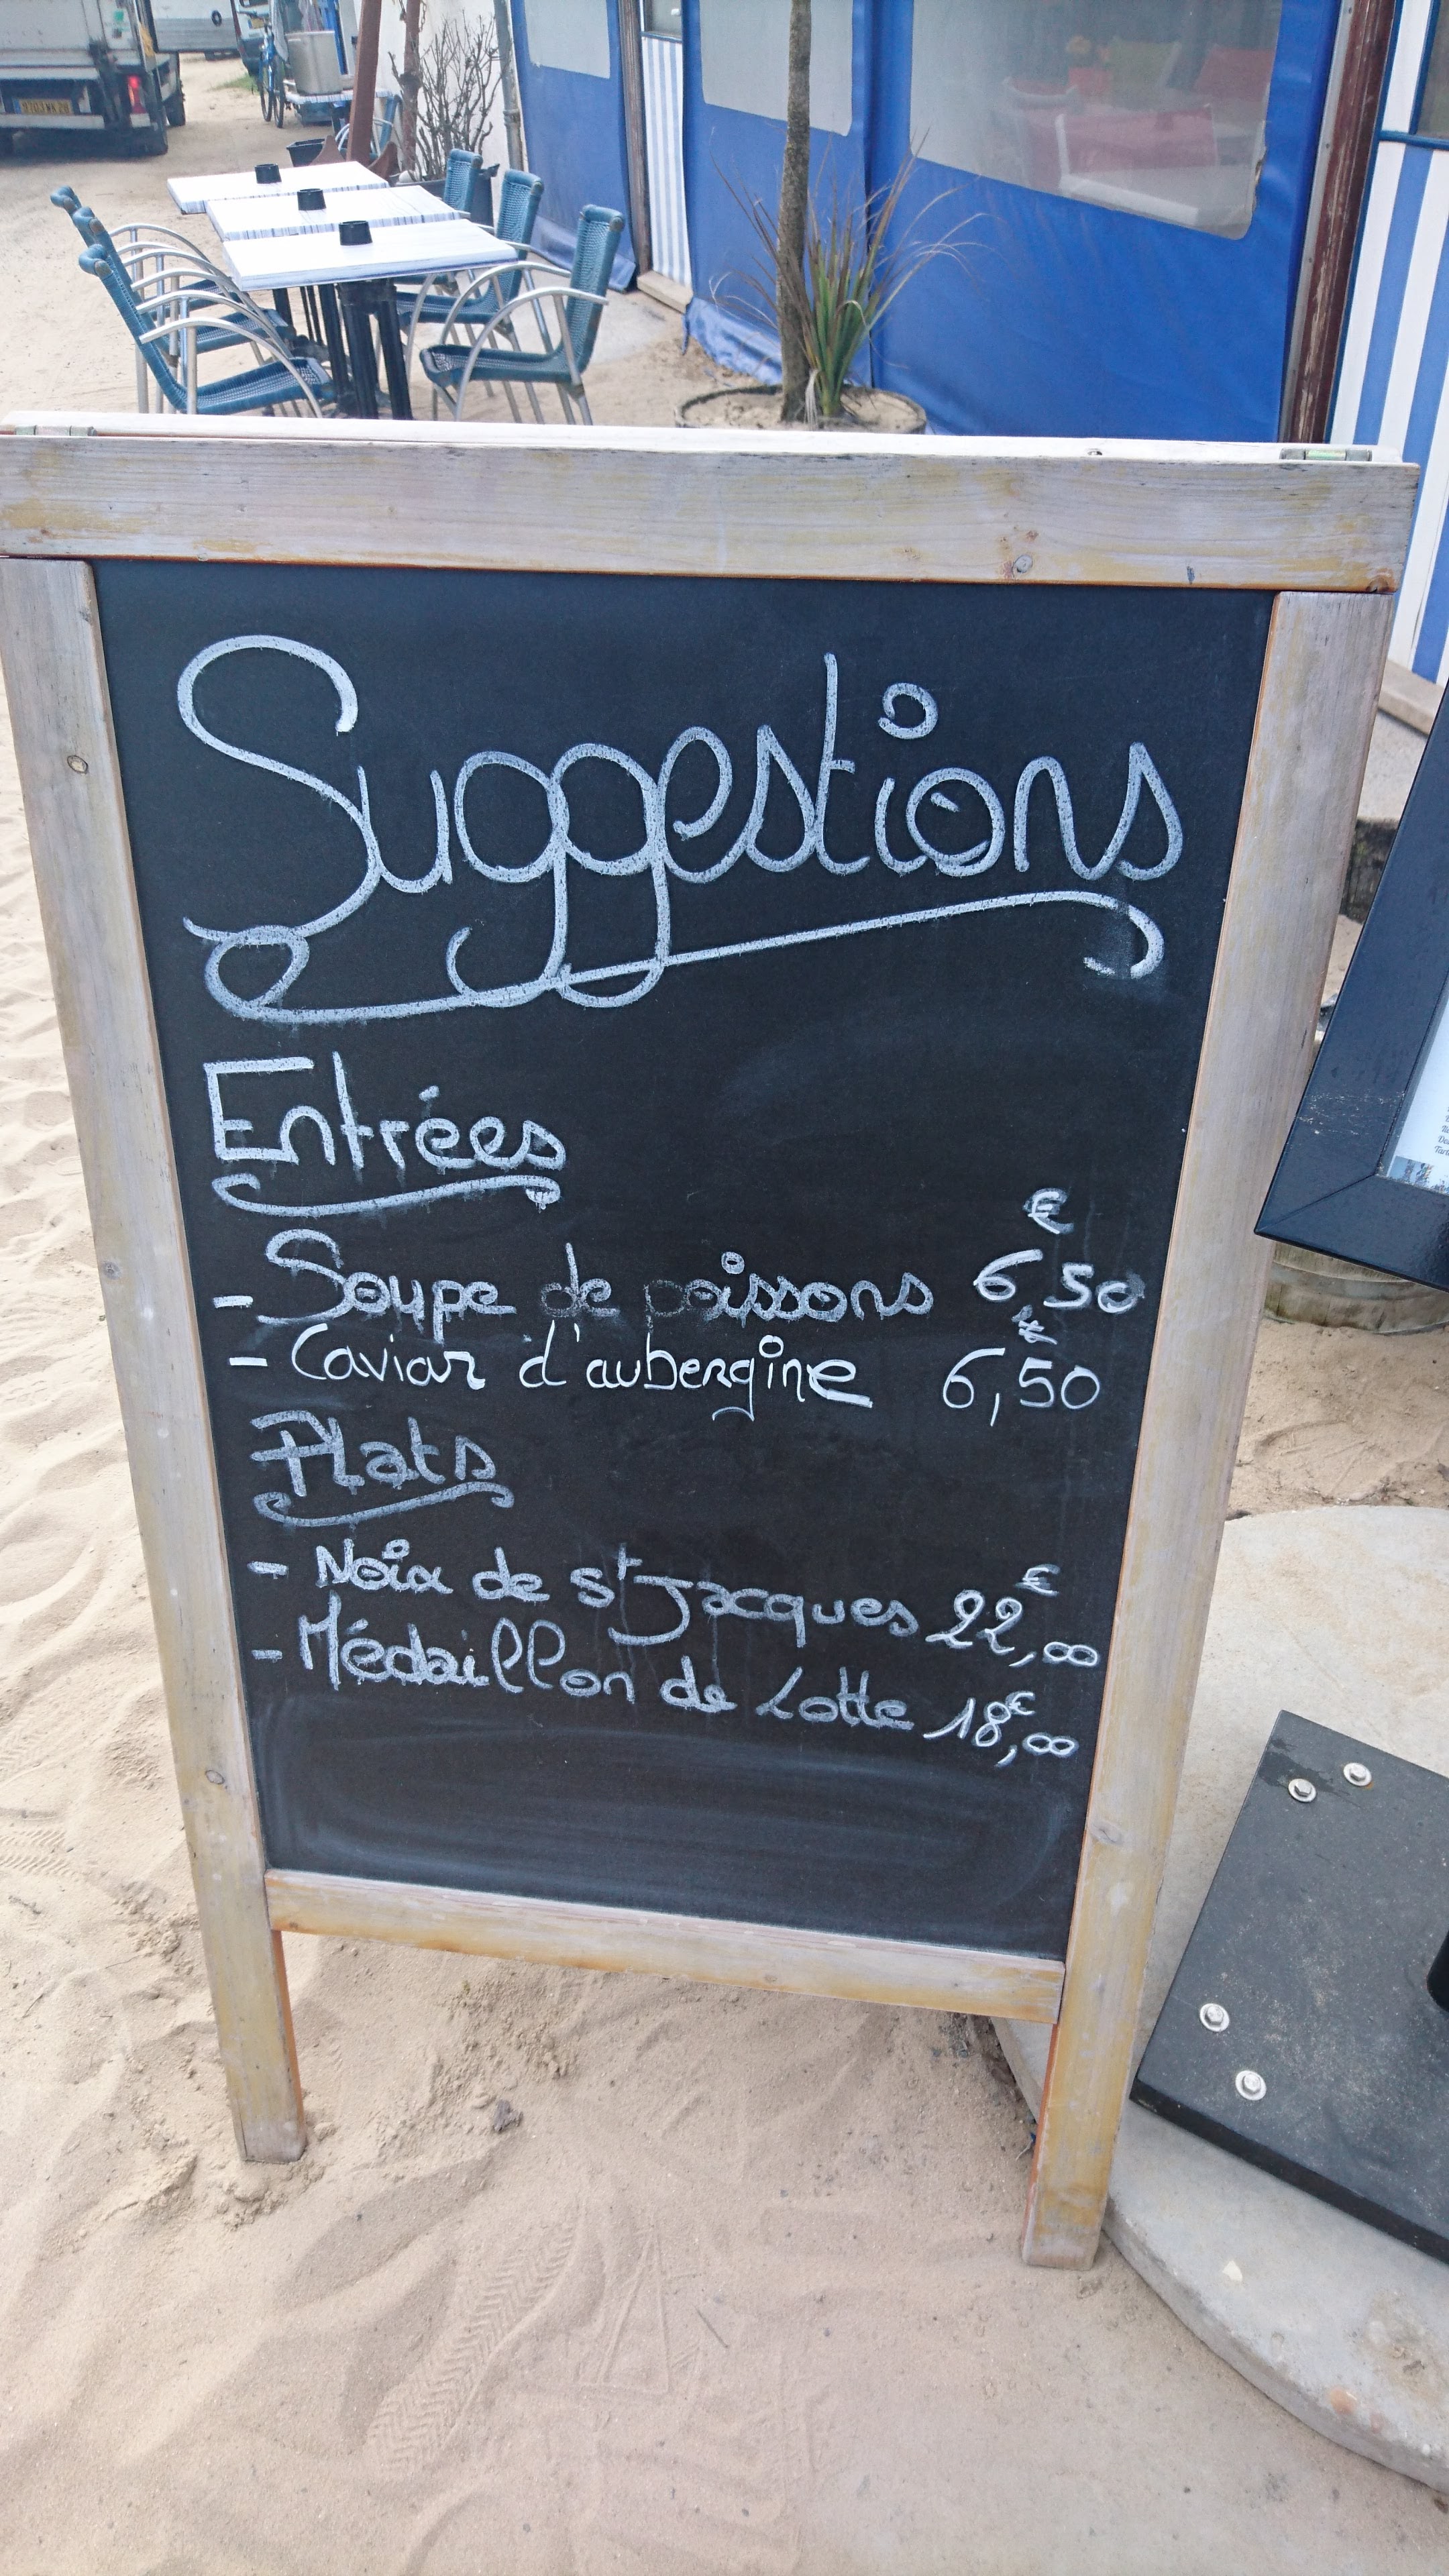 Suggestions
Entrées
- Soupe de poissons 6€,50
- Caviar d'aubergine 6,€50
Plats
- Noix de St Jacques 22€,00
- Médaillon de Lotte 18€,00